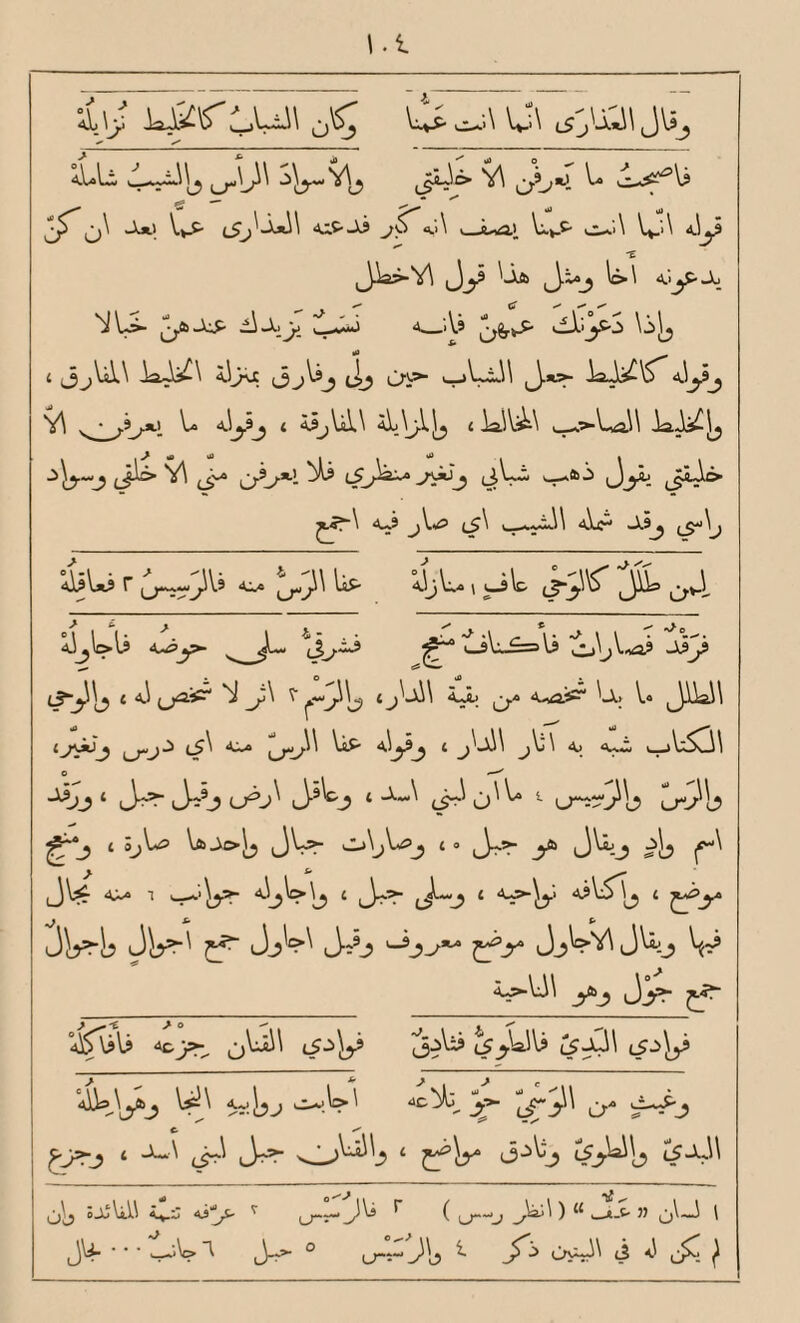 ١٠٤
وقال العذارى إنما أنت عمنا وكان الشباب كالخليط نزايله
فأصبحت ما يعرفن إلا خليقتي وإلا سواد الرأس والشيب شامله
قوله إنما أنت عمنا يصف أنه كبر فدعته العذارى عما بعد أن كن
يدعونه أخا ومثل هذا قول الأخطل
وإذا دعونك عمهن فإنه نسب يزيدك عندهن خبالا
وقوله كالخليط جعل الشباب حين ولى وفارق بمنزلة الخليط المفارق ،
والخليط الصاحب المخالط ، والمزايلة المفارقة ، وقوله ما يعرفن إلا
خليقتي يقول ذهب شبابي وتغير منظري فلا يعرفن مني إلا خلقي وسواد
رأسي وقد شمله الشيب أي صار فيه أجمع
لمن طلل كالوحي عاف ١ منازله عفا الرس منه فالرسيس ٢ فعاقله
فرقد فصارات فأكناف منعج فشرقي سلمى حوضه فأجاوله
الطلل ما بدا شخصه من بقية الدار ، والرسم ٣ أو لا شخص له ، والوحي
الكتاب شبه به آثار الدار ، وقوله عفا الرس منه أي درس وتغير ،
والرس والرسيس ٤ ماءان لبني أسد ، وعاقل أرض وقيل جبل ، ورقد
اسم واد ويقال هو جبل ٥ ، وصارات جبال واحدها صارة ، ومنعج
موضع ، وأكنافه نواحيه ، وسلمى جبل ، وأجاوله جوانب ٦ منه مجال
فيها ويقال الأجاول موضع معروف وقيل أجاول جمع أجوال وأجوال
جمع جول وهو الناحية
فوادي البدي فالطوي فثادق فوادي القنان جزعه فأفاكله
وغيث من الوسمي حو تلاعه أجابت روابيه النجا وهواطله
البدي والطوي وثادق مواضع ، والقنان جبل لبني أسد ، وجزعه
١ لسان ( انظر رسس ) ٢ فالرسيس ٣ وان
لم يكن له في العين ذكر ٤ والرسيس ٥ جبل ٦